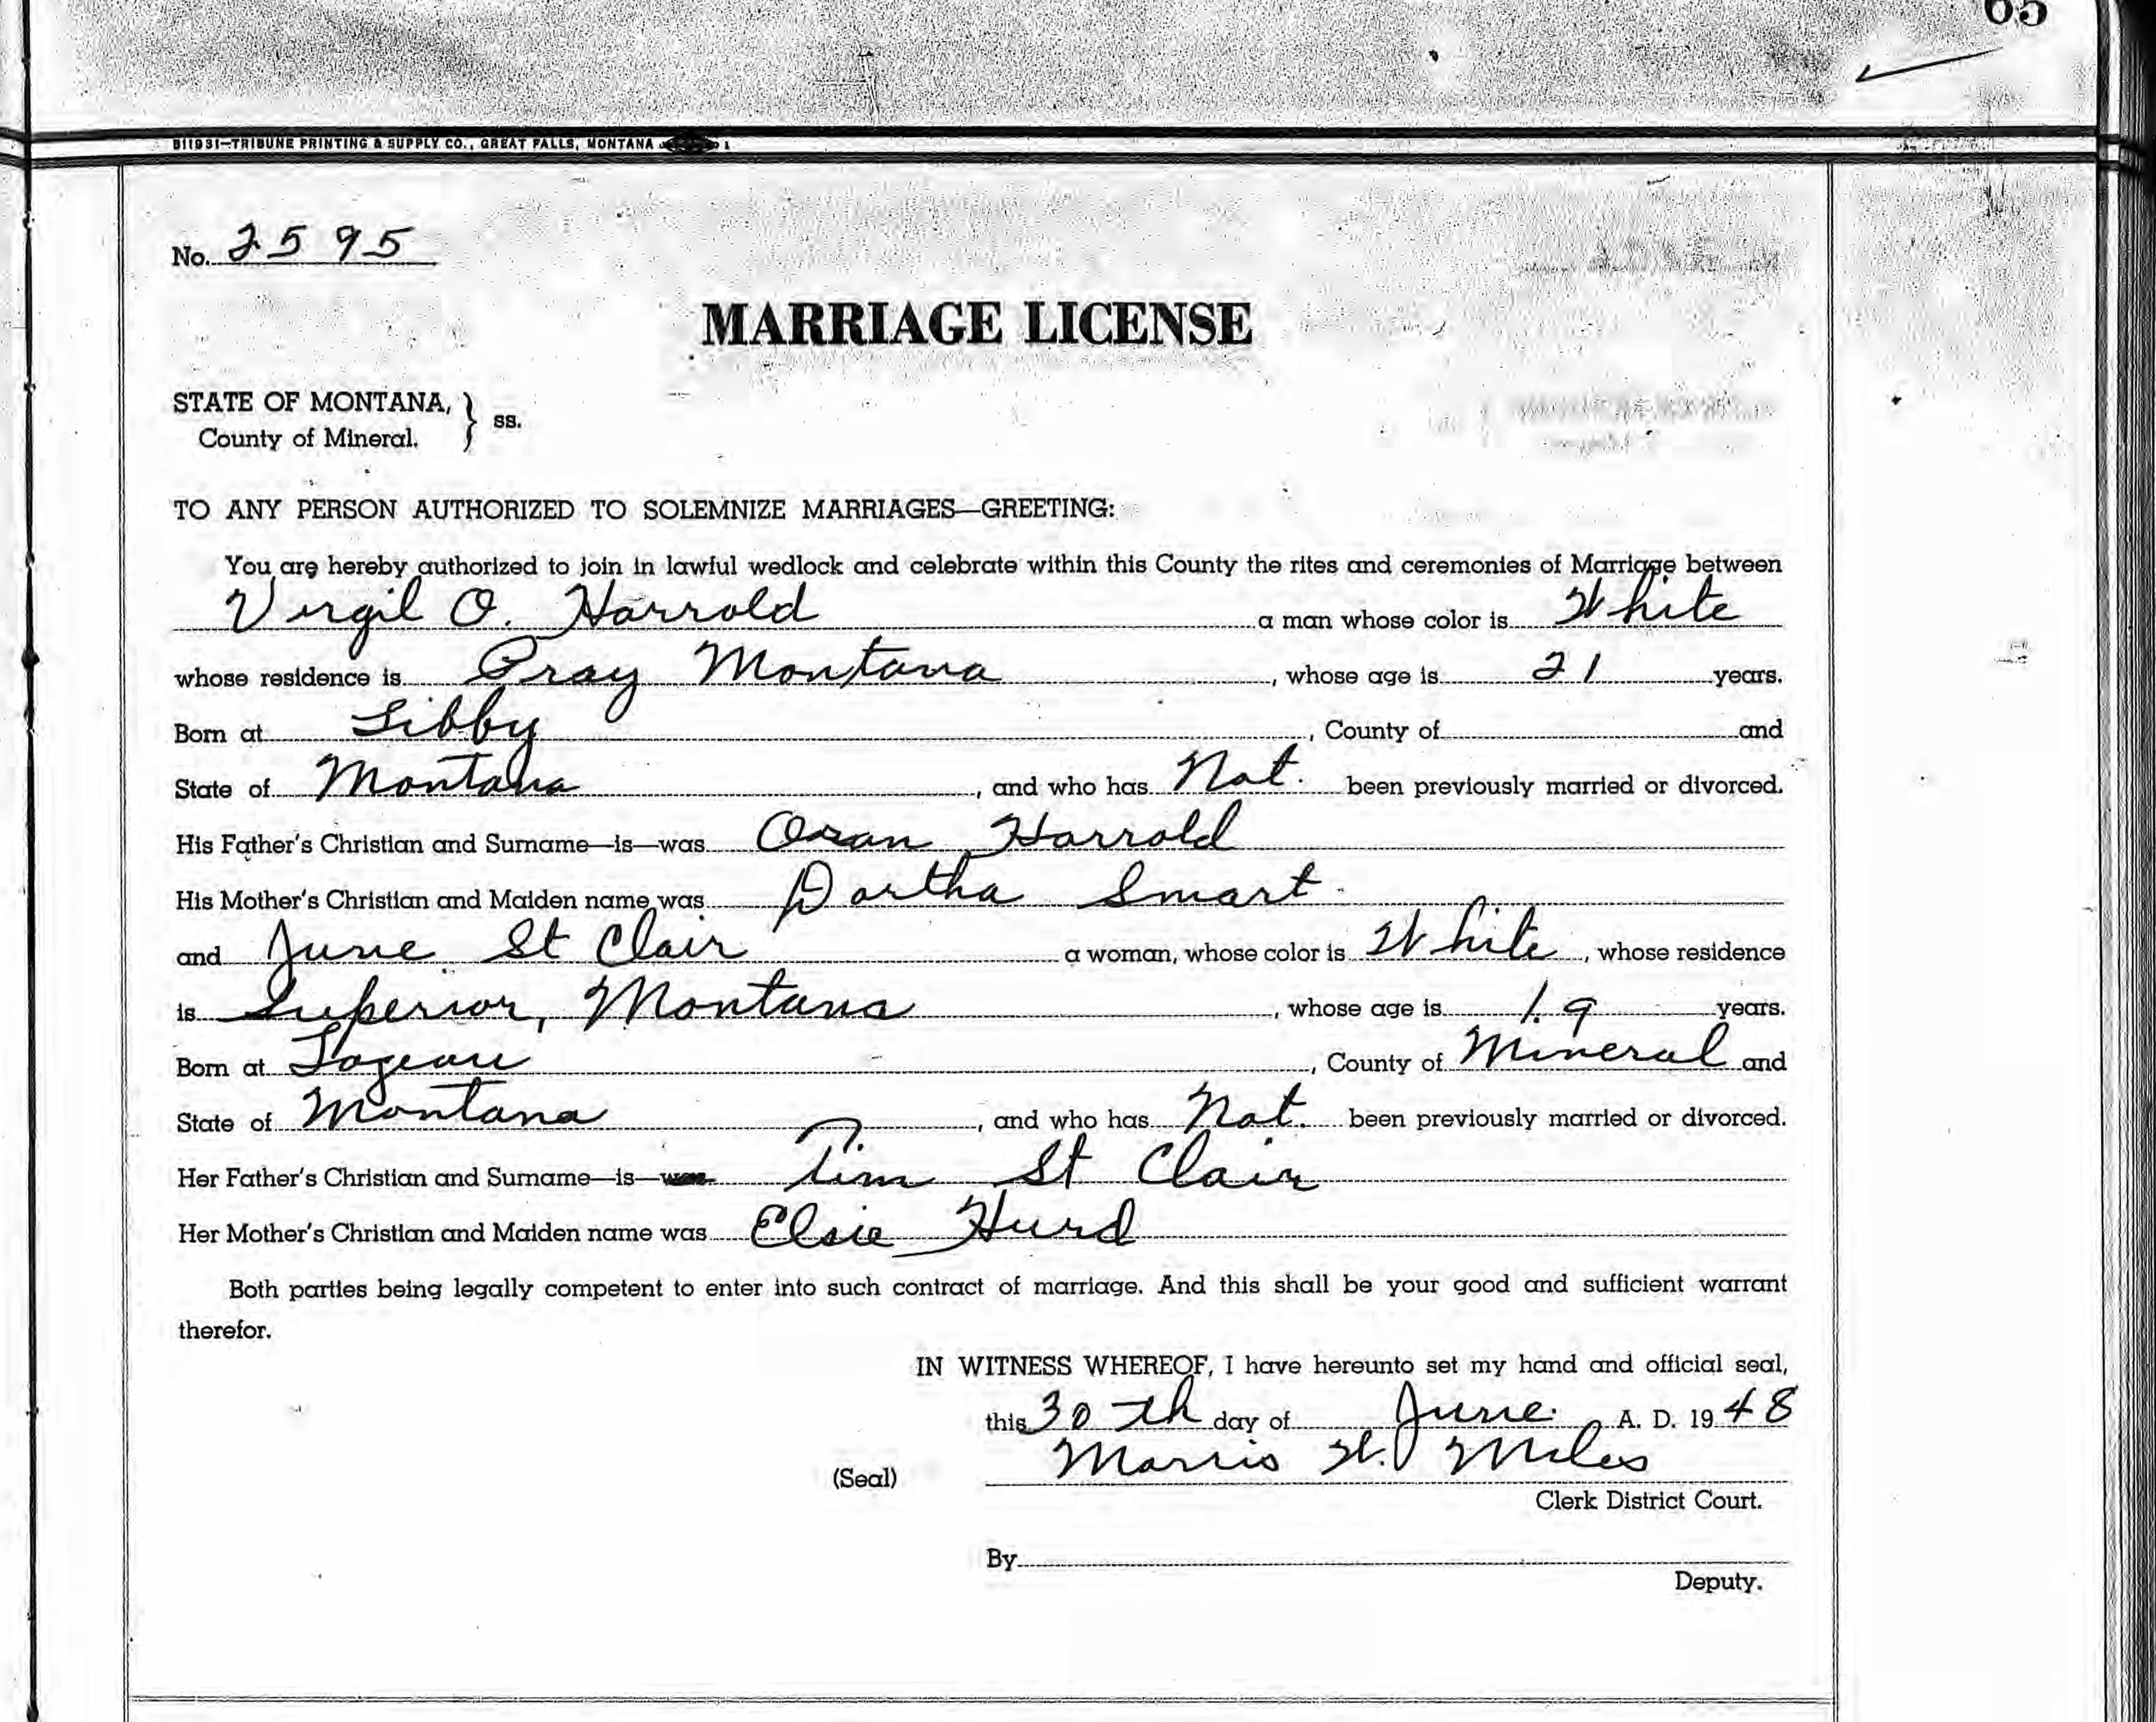 65
B11931—TRIBUNE PRINTING & SUPPLY CO., GREAT FALLS, MONTANA
No. 2595
MARRIAGE LICENSE
STATE OF MONTANA, } ss.
County of Mineral.
TO ANY PERSON AUTHORIZED TO SOLEMNIZE MARRIAGES—GREETING:
You are hereby authorized to join in lawful wedlock and celebrate within this County the rites and ceremonies of Marriage between
Virgil O. Harrold a man whose color is White
whose residence is Pray Montana, whose age is 21 years.
Born at Libby, County of and
State of Montana, and who has Not. been previously married or divorced.
His Father's Christian and Surname—is—was Oran Harrold
His Mother's Christian and Maiden name was Dortha Smart
and June St Clair a woman, whose color is White, whose residence
is Superior, Montana, whose age is 19 years.
Born at Lozeau, County of Mineral and
State of Montana, and who has Not. been previously married or divorced.
Her Father's Christian and Surname—is—was Tim St Clair
Her Mother's Christian and Maiden name was Elsie Hurd
Both parties being legally competent to enter into such contract of marriage. And this shall be your good and sufficient warrant
therefor.
IN WITNESS WHEREOF, I have hereunto set my hand and official seal,
this 30th day of June A. D. 1948
Morris W. Miles
(Seal)
Clerk District Court.
By
Deputy.